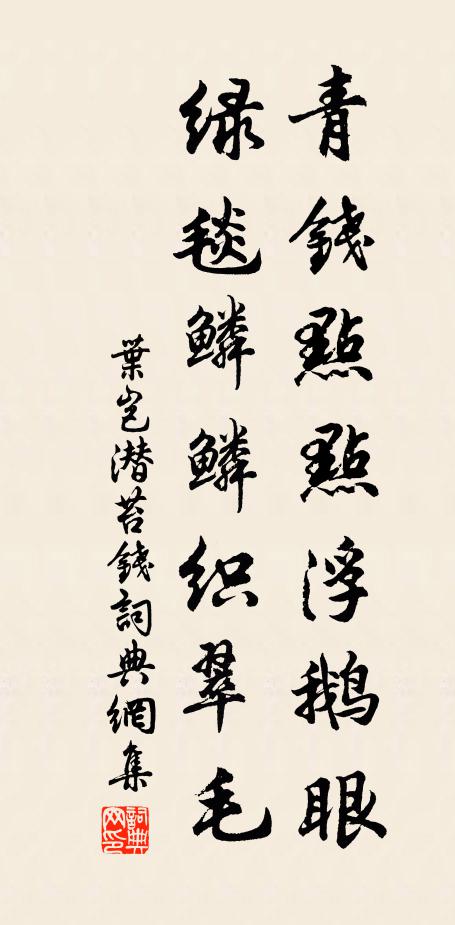 青錢點點浮鹅眼
绿毯鱗鱗织翠毛
葉岂潜苔錢詞典網集
詞典网印